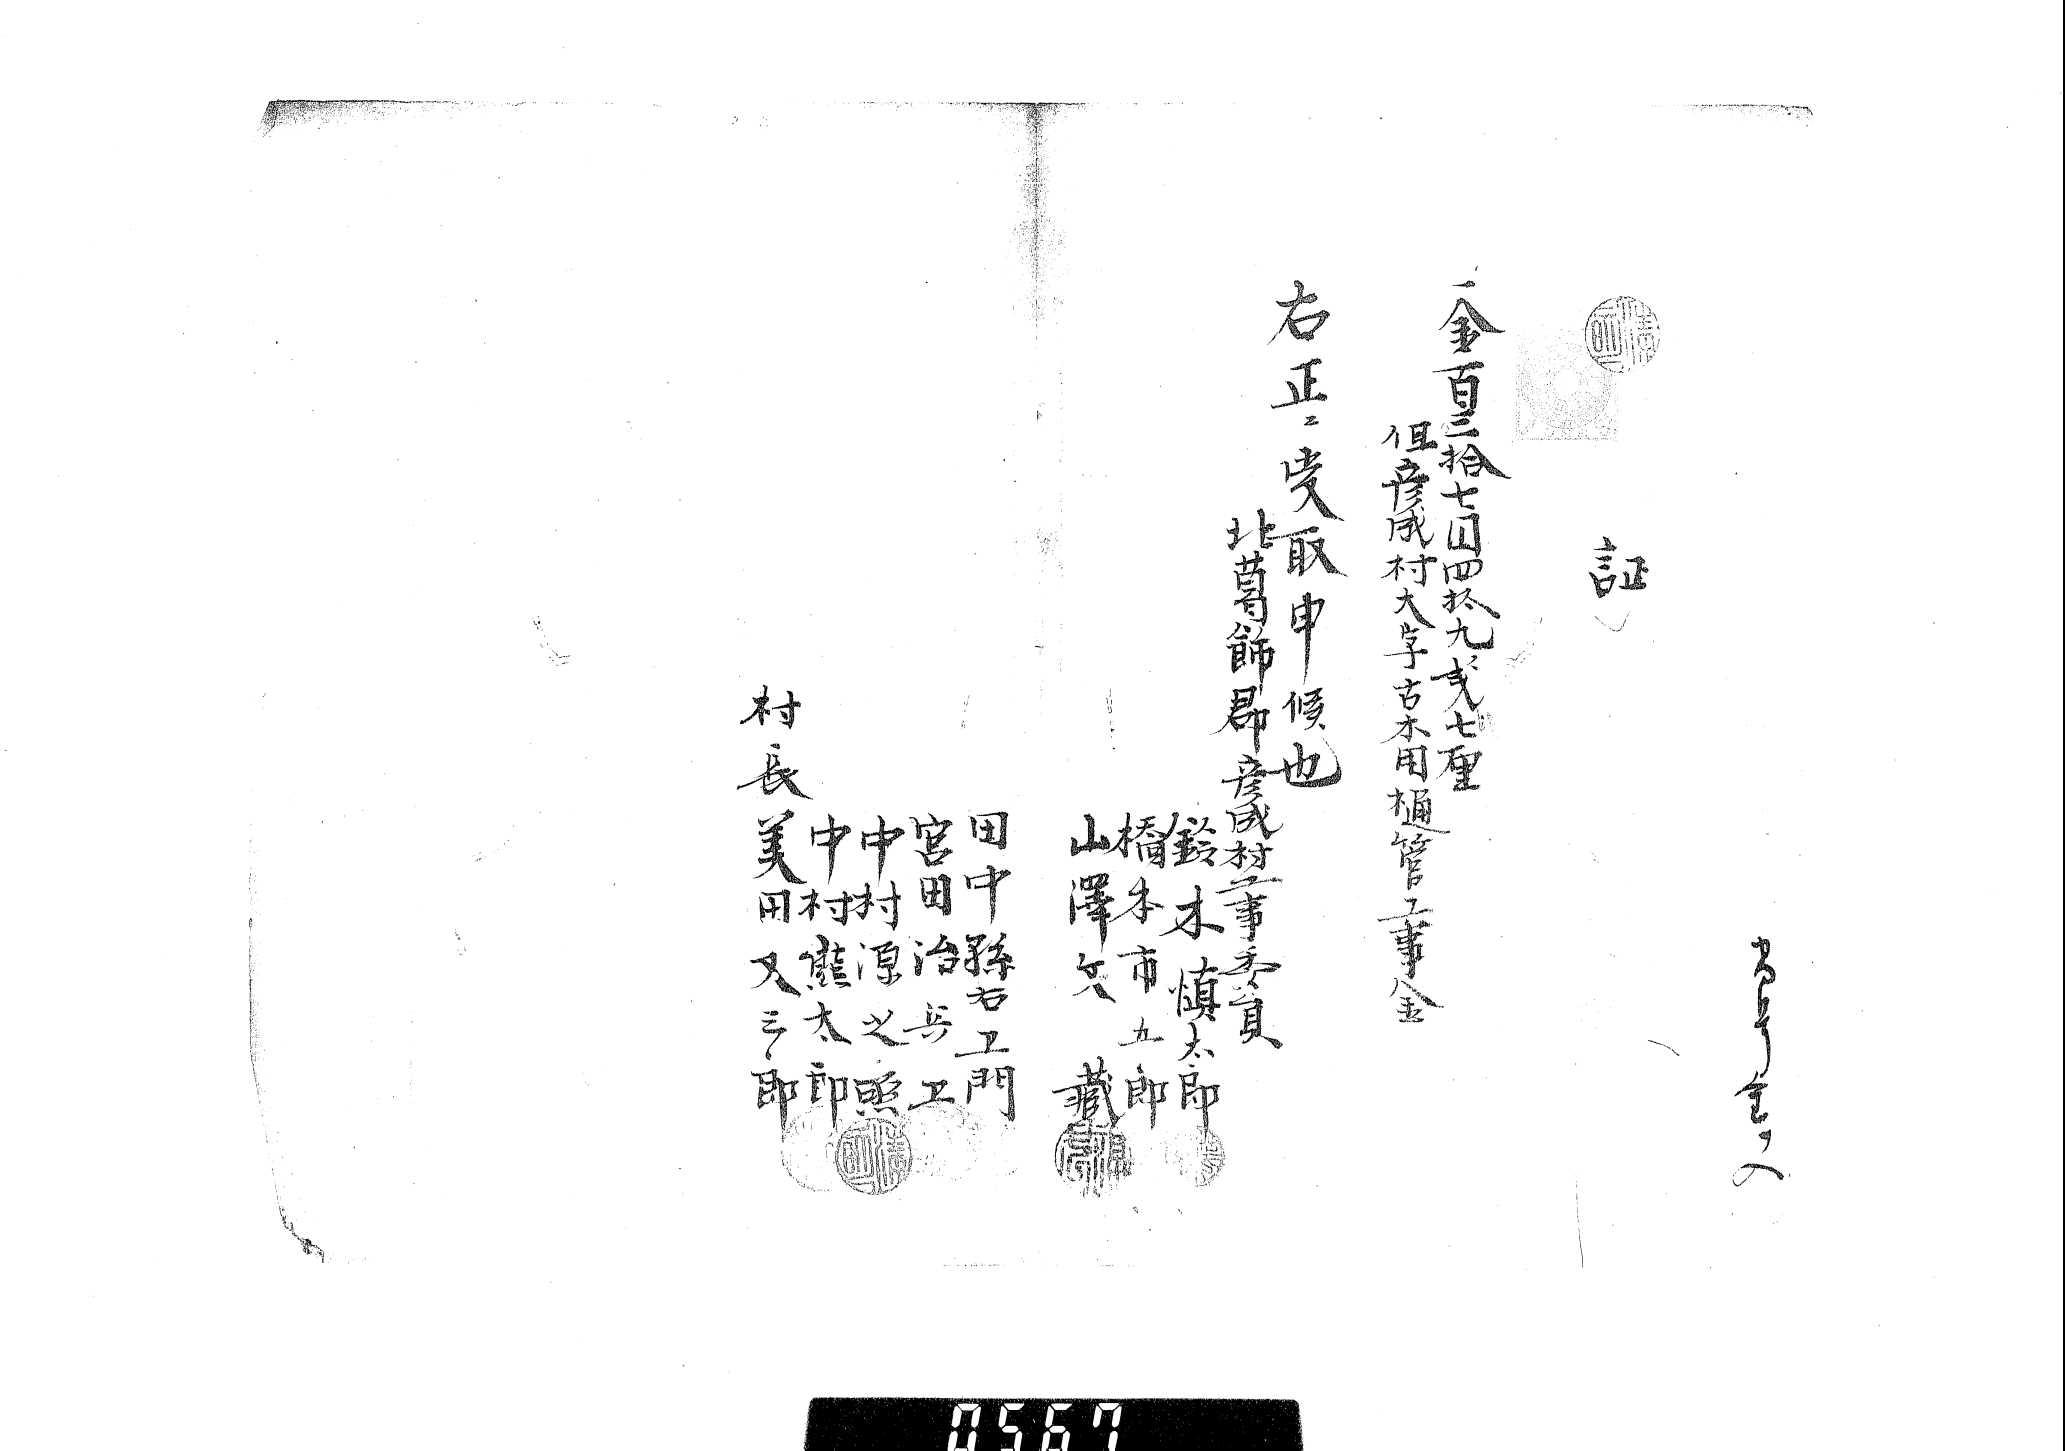 証
一金百三拾七円四拾九戔七厘
但彦成村大字古木用樋管工事金
右正ニ受取申候也
北葛飾郡彦成村工事委員
鈴木慎太郎
橋本市五郎
山澤文藏
田中孫右卫門
宮田治兵卫
中村源之照
中村熊太郎
村長
美田又三郎
0567